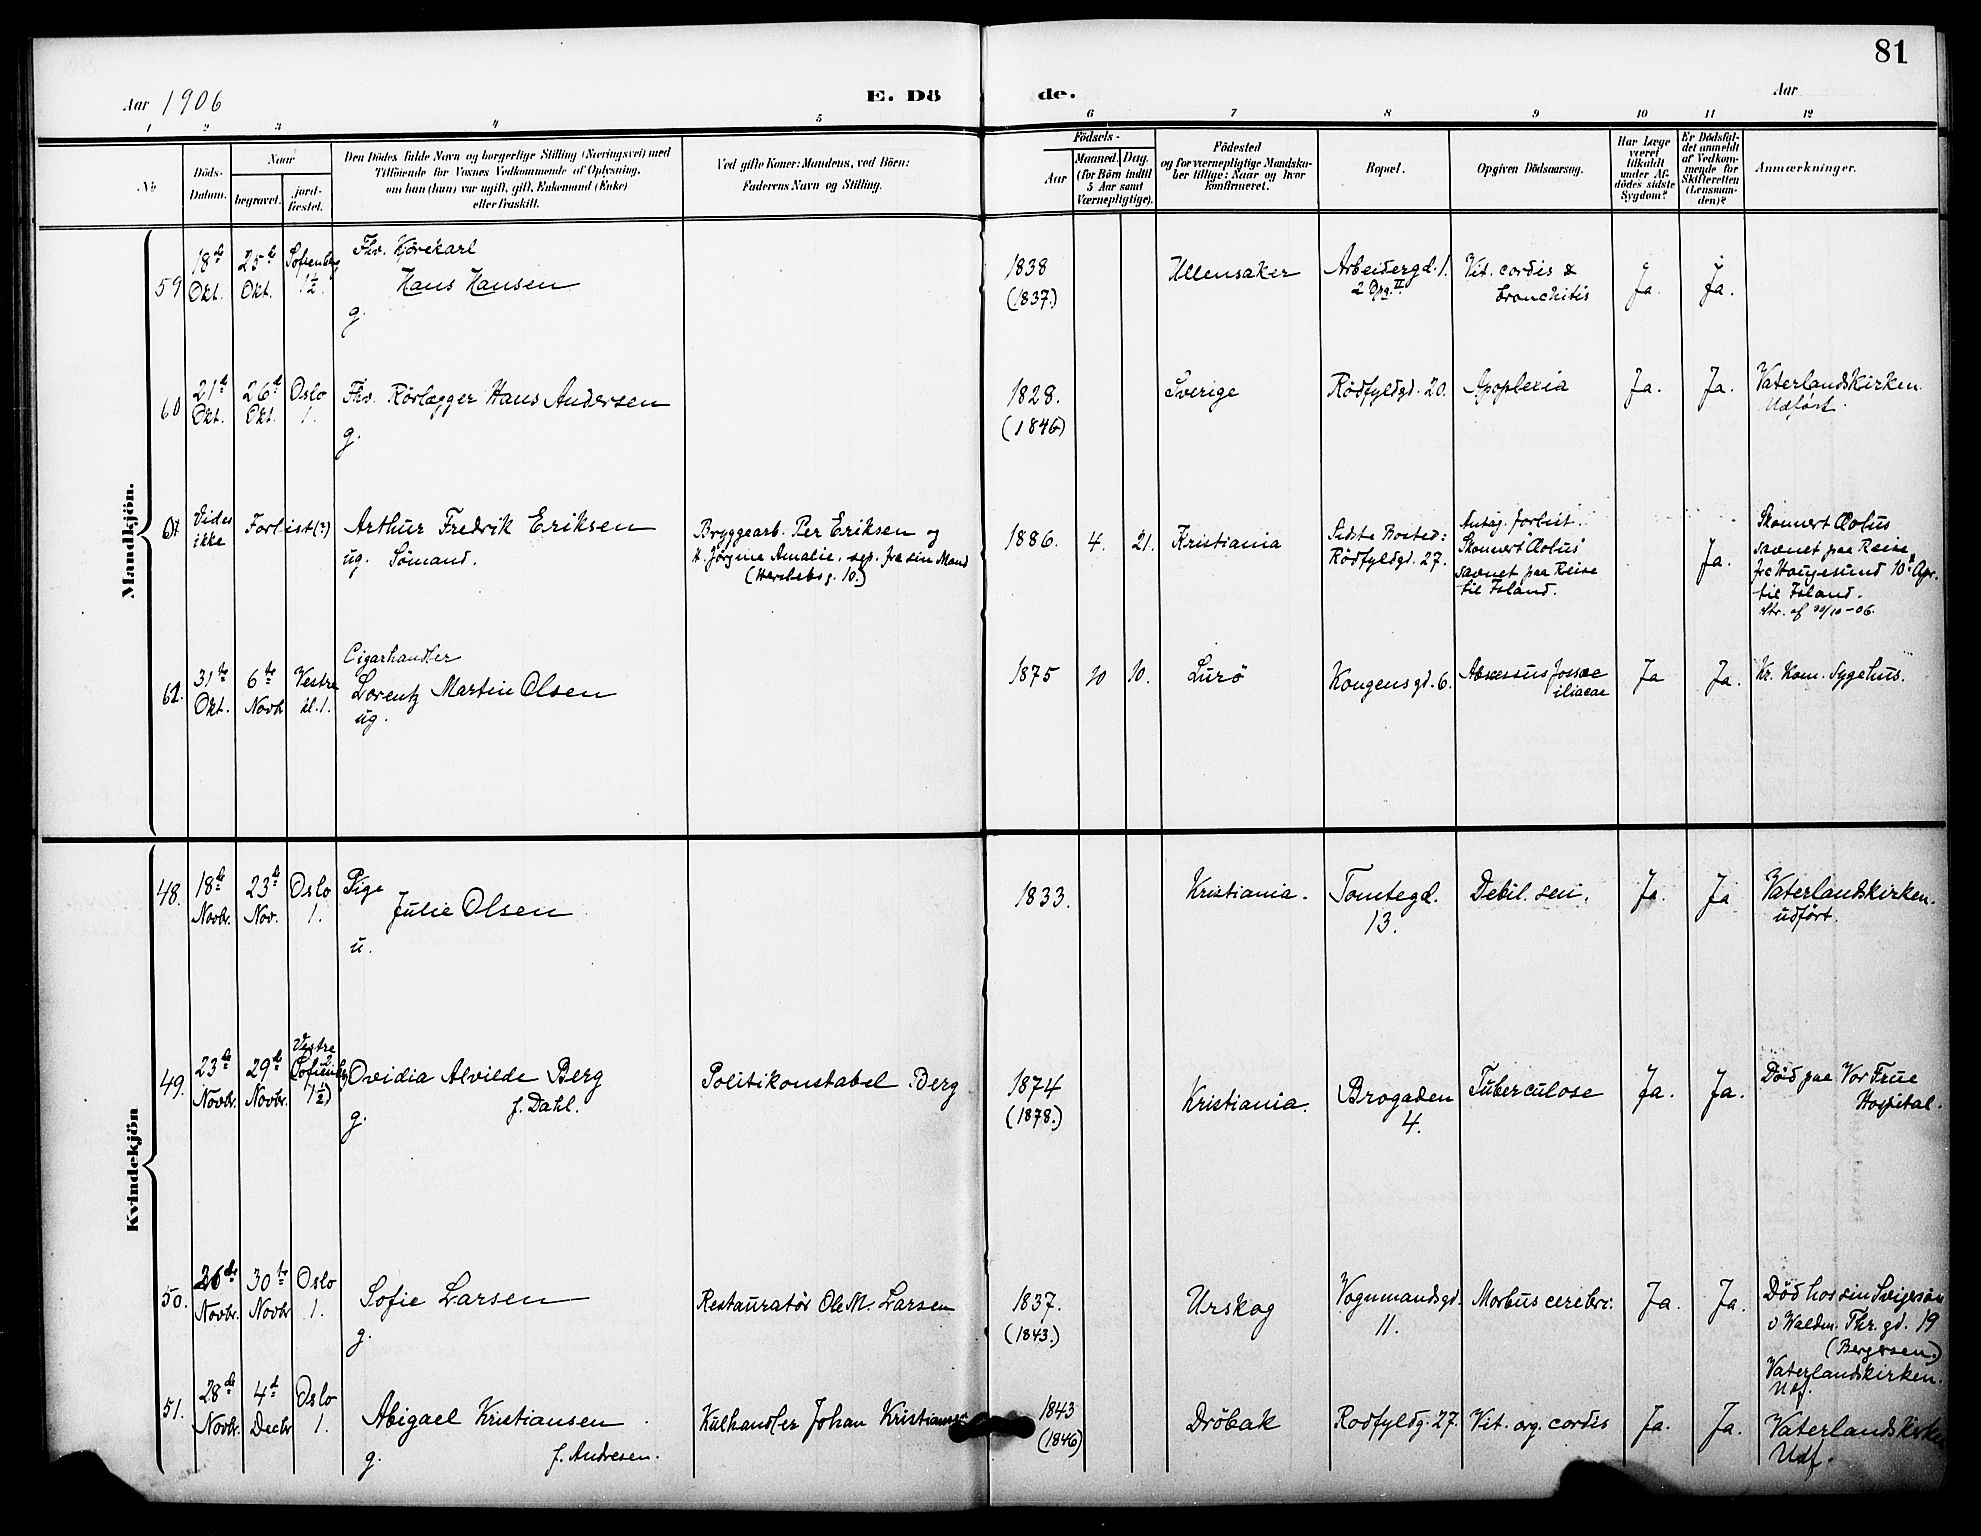 81
Aar 1906
E. Dö de.
Aar
1 2 3 4 5 6 7 8 9 10 11 12
No
Döds-
Datum.
Naar
begravet.
jord-
fæstet.
Den Dödes fulde Navn og borgerlige Stilling (Næringsvei) med
Tilföiende for Voxnes Vedkommende af Oplysning,
om han (hun) var ugift, gift, Enkemand (Enke)
eller fraskilt.
Ved gifte Koner: Mandens, ved Börn:
Faderens Navn og Stilling.
Födsels-
Aar
Maaned. Dag.
(for Börn indtil
5 Aar samt
Værnepligtige).
Födested
og for værnepligtige Mandska-
ber tillige: Naar og hvor
konfirmeret.
Bopæl.
Opgiven Dödsaarsag.
Har Læge
været
tilkaldt
under Af-
dödes sidste
Sygdom?
Er Dödsfal-
det anmeldt
af Vedkom-
mende for
Skifteretten
(Lensman-
den)?
Anmærkninger.
Mandkjön.
59
18de
Okt.
25de
Okt.
Sofienberg
1½
Fhv. Kjørekarl
Hans Hansen
g.
1838
(1837.)
Ullensaker
Arbeidergd. 1.
2 Opg. II.
Vit. cordis &
bronchitis
Ja.
Ja.
60
21de
Okt.
26de
Okt.
Oslo
1.
Fhv. Rörlægger Hans Andersen
g.
1828.
(1846)
Sverige
Rödfyldgd. 20.
Apoplexia
Ja.
Ja.
Vaterlandskirken
Udført.
61
Vides
ikke
Forlist (?)
Arthur Fredrik Eriksen
ug. Sömand.
Bryggearb. Per Eriksen og
H. Jørgine Amalie, sep. fra sin Mand
(Herslebsg. 10.)
1886. 4. 21.
Kristiania
Sidste Bosted:
Rödfyldgd. 27.
Antag. forlist.
Skonnert "Æolus"
savnet paa Reise
til Island.
Ja.
Skonnert Æolus
savnet paa Reise
fra Haugesund 10de Apr.
til Island.
62.
31te
Okt.
6te
Novb
Vestre
kl. 1.
Cigarhandler
Lorentz Martin Olsen
ug.
1875 10 10.
Lurö
Kongensgd. 6.
Abscessus fossae
iliacae
Ja
Ja.
Kr. Kom. Sygehus.
Kvindekjön
48.
18de
Novbr.
23de
Nov.
Oslo
1.
Pige
Julie Olsen
u.
1833.
Kristiania.
Tomtegd.
13.
Debil. sen.
Ja.
Ja
Vaterlandskirken.
udført.
49.
23de
Novbr.
29de
Novbr.
Vestre
(Sofienbg
1½)
Ovidia Alvilde Berg
f. Dahl.
g.
Politikonstabel Berg
1874
(1878.)
Kristiania.
Brogaden
4.
Tuberculose
Ja.
Ja.
Död paa Vor Frue
Hospital.
50.
26de
Novbr.
30te
Novbr
Oslo
1.
Sofie Larsen
g.
Restauratør Ole M. Larsen
1837.
(1843.)
Urskog
Vognmandsgd.
11.
Morbus cerebri.
Ja.
Ja.
Död hos sin Svigersøn
Waldm. Thr. gd. 19
(Bergersen.)
Vaterlandskirken.
Udf.
51.
28de
Novbr.
4de
Decbr
Oslo
1.
Abigael Kristiansen
f. Andresen.
g.
Kulhandler Johan Kristiansen
1843
(1846)
Dröbak
Rodfyldg. 27.
Vit. org. cordis
Ja.
Ja.
Vaterlandskirken
Udf.